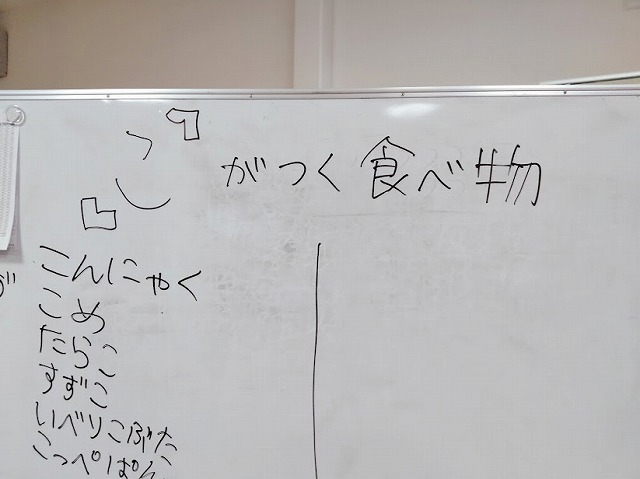 「こ」がつく食べ物
こんにゃく
こめ
たらこ
すずこ
いべりこぶた
こっぺぱん